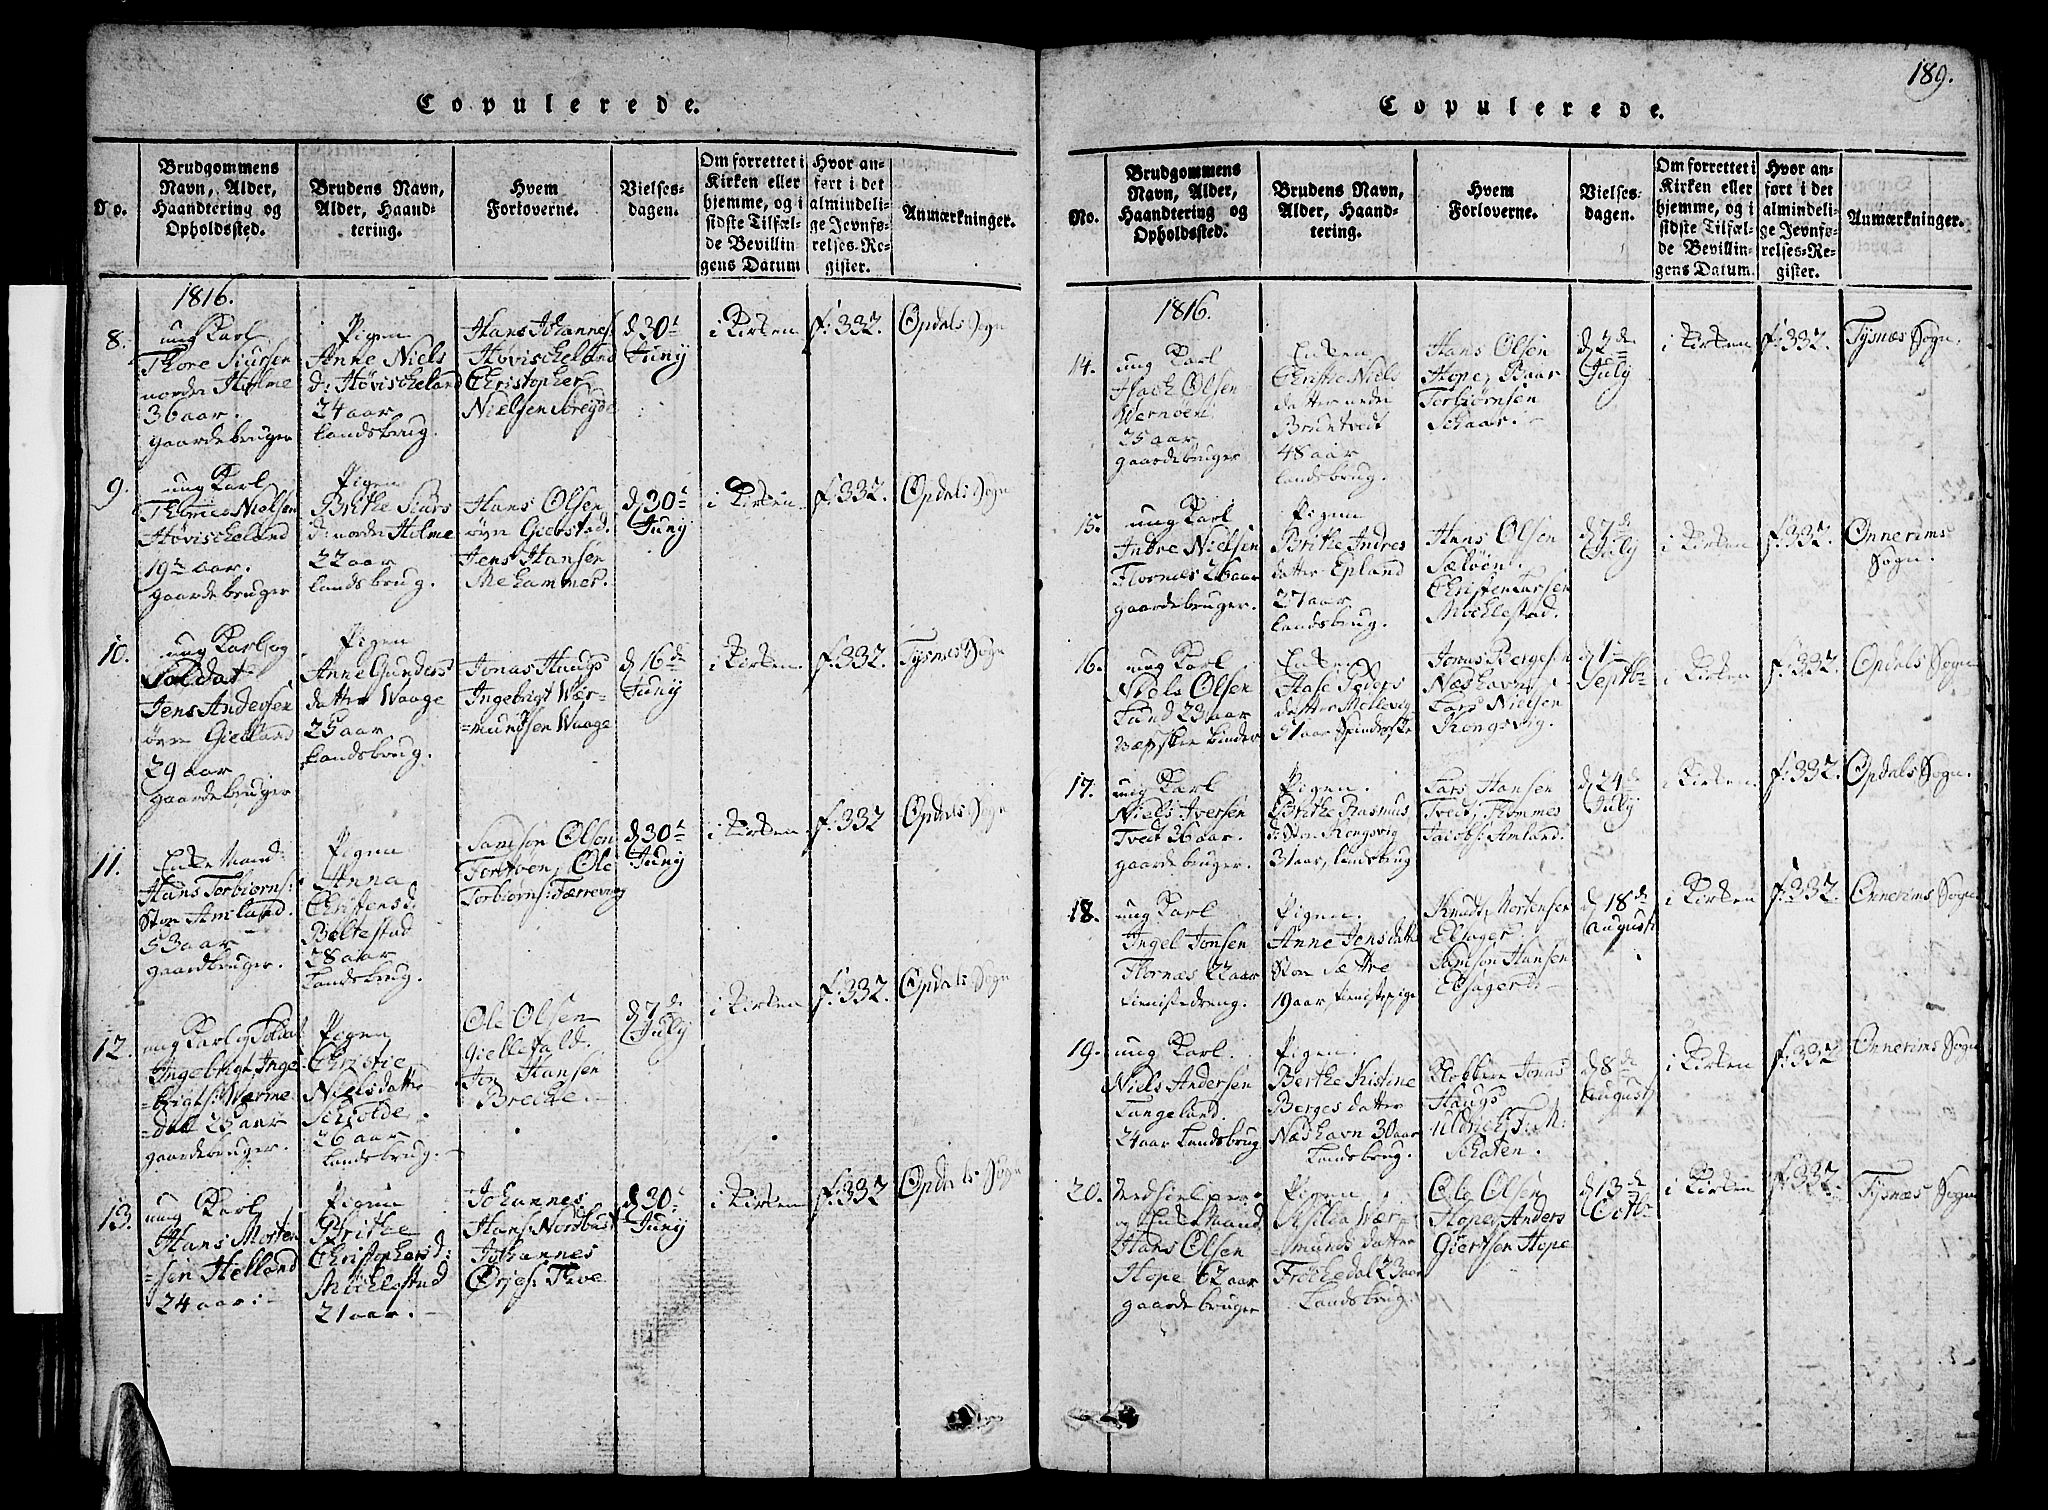 189.
Copulerede.
No.
Brudgommens
Navn, Alder,
Haandtering og
Opholdssted.
Brudens Navn,
Alder, Haand-
tering.
Hvem
Forloverne.
Vielses-
dagen.
Om forrettet i
Kirken eller
hjemme, og i
sidste Tilfæl-
de Bevillin
gens Datum
Hvor an-
ført i det
almindeli-
ge Jevnfø-
relses-Re-
gister.
Anmærkninger.
1816.
8.
ung Karl
Thore Siursen
nordre Holme
36 aar.
gaardebruger
Pigen
Anne Niels
d: Høvischeland
24 aar
Landsbrug.
Hans Johannes:
Høvischeland
Christopher
Nielsen Søreyde
d 30t
Juny
i Kirken
f: 332.
Opdals Sogn
9.
ung Karl
Nielsen
Høvischeland
19 aar.
gaardebruger
Pigen
Brithe Siurs
d: nordre Holme
22 aar
Landsbrug.
Hans Olsen
øvre Gierstad.
Jens Hansen
Mehammer.
d 30t
Juny
i Kirken
f: 332.
Opdals Sogn
10.
ung Karl og
Soldat
Jens Andersen
øvre Gielland
29 aar
gaardebruger
Pigen
Anne Gunders
datter Waage
25 aar
Landsbrug.
Jonas Haugs
Ingebrigt Wær-
=mundsen Waage
d 16de
Juny
i Kirken
f: 332.
Tysnæs Sogn
11.
Enke Mand:
Hans Torbiørns:
Stor Amland.
53 aar
gaardbruger.
Pigen
Anna
Christensd:
Beltestad
28 aar
Landsbrug.
Samson Olsen
Ole
Torbiørns: Færrevaag
d 30t
Juny
i Kirken
f: 332
Opdals Sogn
12.
ung Karl og Soldat
Ingebrigt Inge
=brigts: Wærme
=dal 25 aar
gaardebruger.
Pigen
Christie
Nielsdatter
Schiolde
26 aar
Landsbrug.
Ole Olsen
Gillefald.
Jon Hansen
Breche.
d 7de
July
i Kirken
f: 332.
Opdals Sogn
13.
ung Karl
Hans Morten
=sen Helland
24 aar:
Pigen
Brithe
Christophersd:
Møchlestad
21 aar.
Johannes
Hans: Nordbust
Johannes
Ørjes: Tvee
d 30t
Juny
i Kirken
f: 332
Opdals Sogn
Copulerede.
No.
Brudgommens
Navn, Alder,
Haandtering og
Opholdssted.
Brudens Navn,
Alder, Haand-
tering.
Hvem
Forloverne.
Vielses-
dagen.
Om forrettet i
Kirken eller
hjemme, og i
sidste Tilfæl-
de Bevillin-
gens Datum.
Hvor an-
ført i det
almindeli-
ge Jevnfø-
relses-Re-
gister.
Anmærkninger.
1816.
14.
ung Karl
Olsen
Wernøen
25 aar
gaardebruger
Enken
Christie Niels
datter nedre
Bruntvedt
48 aar
Landsbrug.
Hans Olsen
Hope, Baar
Torbiørnsen
Schaar.
d 2de
July
i Kirken
f: 332.
Tysnæs Sogn.
15.
ung Karl
Andre Nielsen
Flornæs 26 aar
gaardebruger.
Pigen
Brithe Andres
datter Epland
27 aar
Landsbrug.
Hans Olsen
Sæløen.
Christen Larsen
Møchlestad.
d 7de
July
i Kirken
f: 332.
Onnerims
Sogn.
16.
ung Karl
Niels Olsen
Lund 23 aar
Enken
Aase Peders
datter Mellevig
31 aar
Jonas Bergesen
Næshavn
Lars Nielsen
Kongsvig.
d 1te
Septbr
i Kirken
f: 332.
Opdals Sogn
17.
ung Karl
Niels Iversen
Tvedt 26 aar.
gaardebruger.
Pigen.
Brithe Rasmus
datter Kongsvig
31 aar, Landsbrug
Lars Hansen
Tvedt, Thommes
Jacobs: Amland.
d 24de
July
i Kirken
f: 332.
Opdals Sogn.
18.
ung Karl
Ingel Jonsen
Flornæs 22 aar
tienistedreng.
Pigen.
Anne Jensdatter
Stor Sættre
19 aar, tienistepige
Knudt Mortensen
Elsager.
Samson Hansen
Elsager.
d 18de
Augusti
i Kirken
f: 332.
Onnerims Sogn
19.
ung Karl.
Niels Andersen
Langeland.
24 aar Landsbrug
Pigen.
Berthe Kistine
Berges datter
Næshavn 30 aar
Landsbrug.
Klokker Jonas
Haugs
Uldrich F: M:
Schaten.
d 8de
Augusti
i Kirken
f: 332
Onnerims Sogn
20.
og Enke Mand
Hans Olsen
Hope 62 aar
gaardebruger
Pigen
Asilia Wær
=munds datter
Frøchedal 23 aar
Landsbrug.
Ole Olsen
Hope, Anders
Giertsen Hope
d 13de
Octbr
i Kirken
f: 332.
Tysnæs Sogn